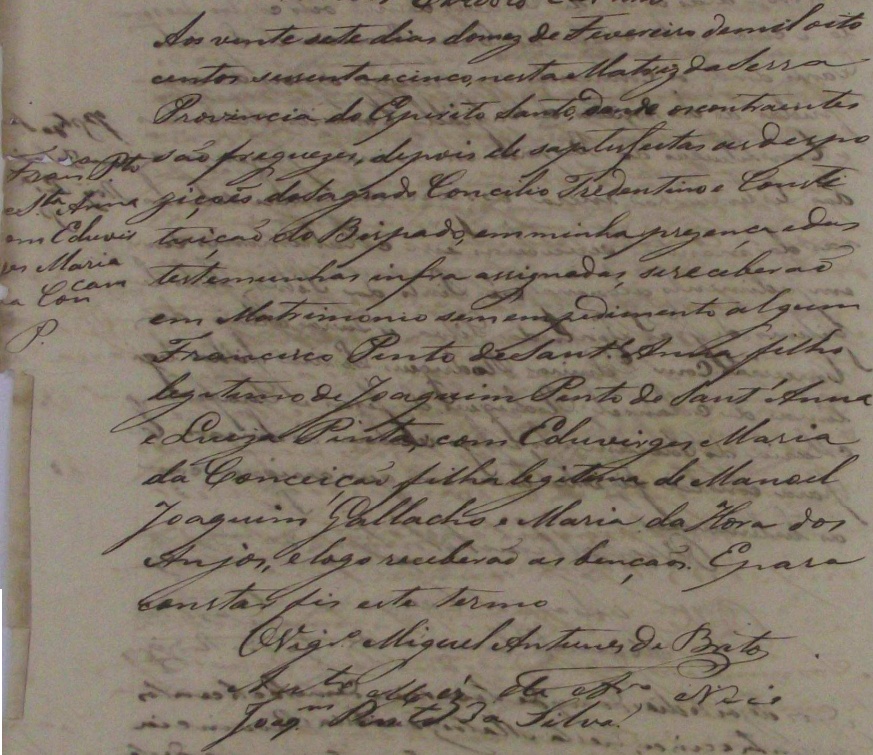 Fran Pto
e Sta Anna
em Eduvir
ges Maria
a Con cam
P.
Aos vente sete dias domez de Fevereiro demil oito
centos sessenta e cinco, nesta Matriz da Serra
Provincia do Espirito Santo, donde os contraentes
são freguezes, depois de
zições do Sagrado Concilio Tredentino e Consti
tuição do Bispado, em minha prezença e das
testemunhas infra assignadas, se receberão
em Matrimonio sem empedimento algum
Francisco Pinto de Sant'Anna filho
legitimo de Joaquim Pinto de Sant'Anna
e Luiza Pinta, com Eduvirges Maria
da Conceição filha legitima de Manoel
Joaquim Gallacho e Maria da Hora dos
Anjos, e logo receberão as bençaõs. E para
constar fis este termo
O Vigr.o Miguel Antunes de Brito
Joaq.m Pinto da Silva